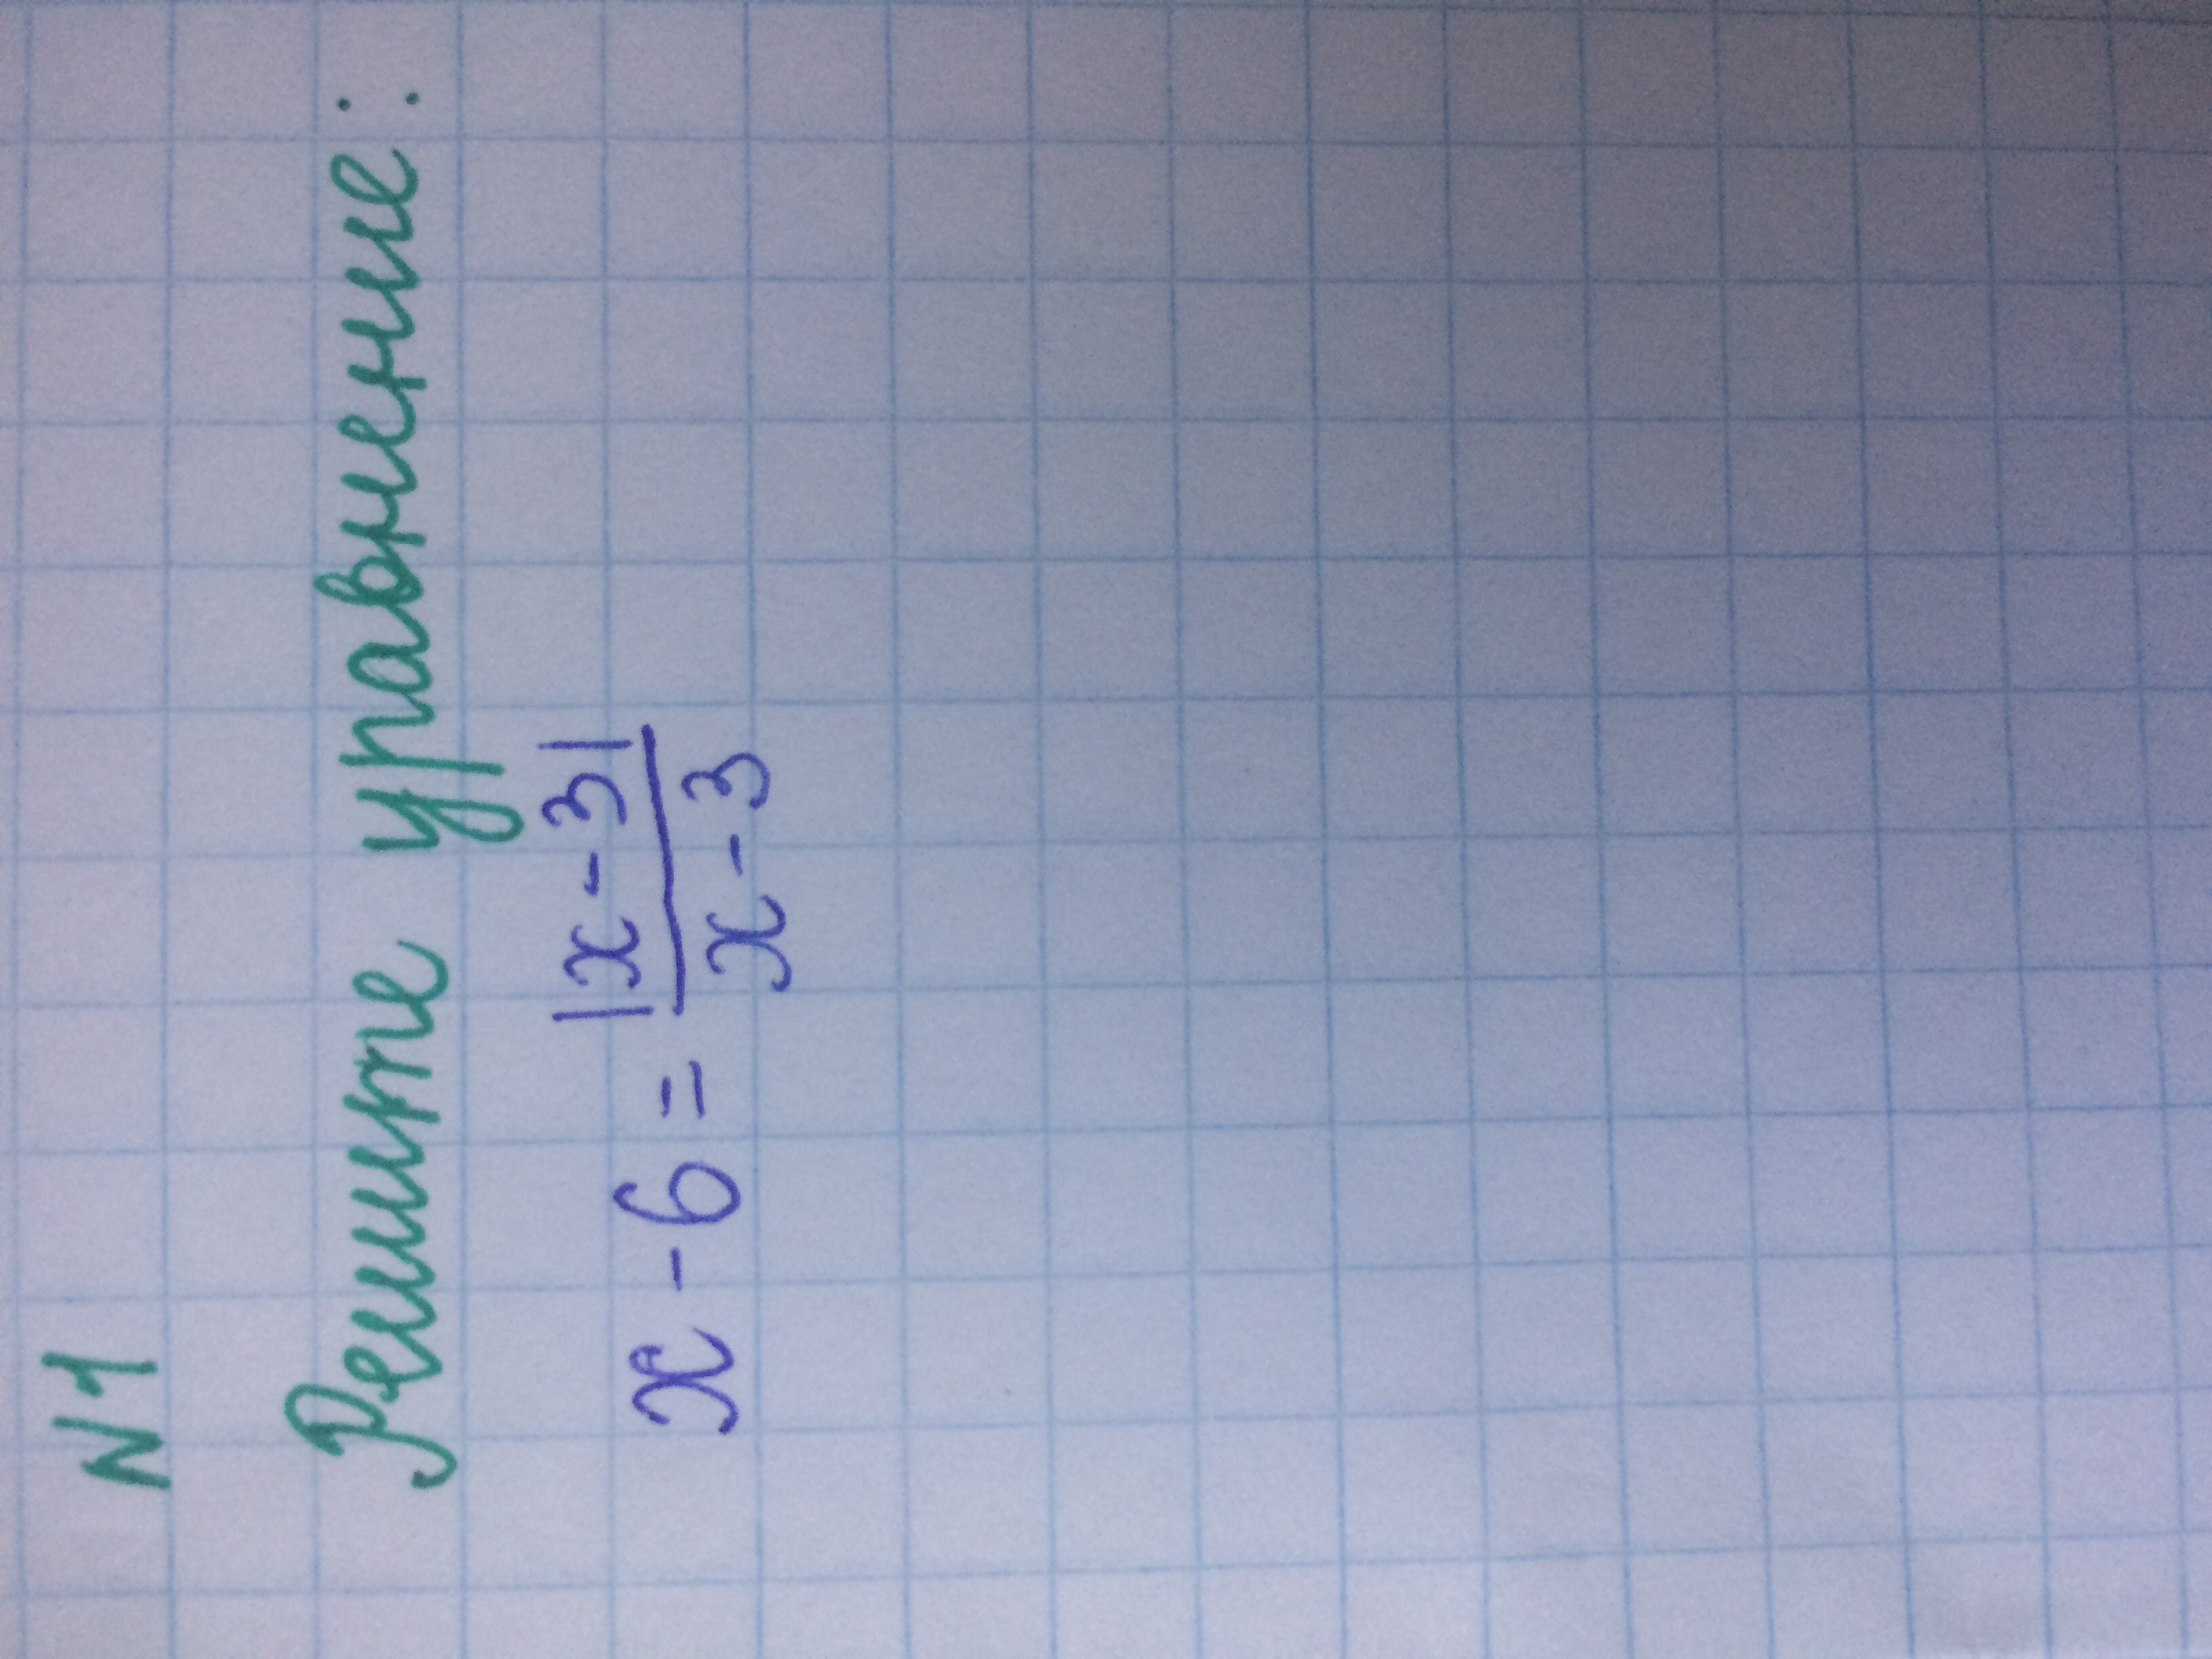 N1
Решите уравнение:
x - 6 = |x - 3| / x - 3